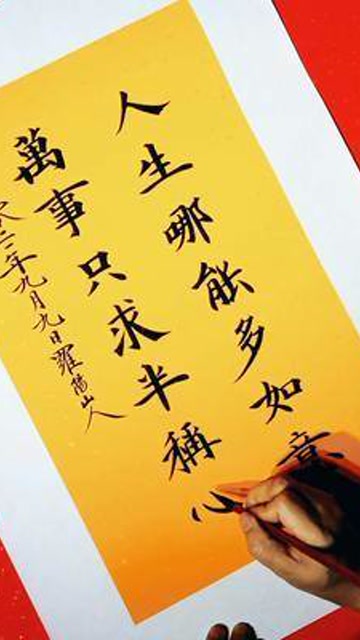 人生哪能多如意
萬事只求半稱心
二年九月九日羅陽山人